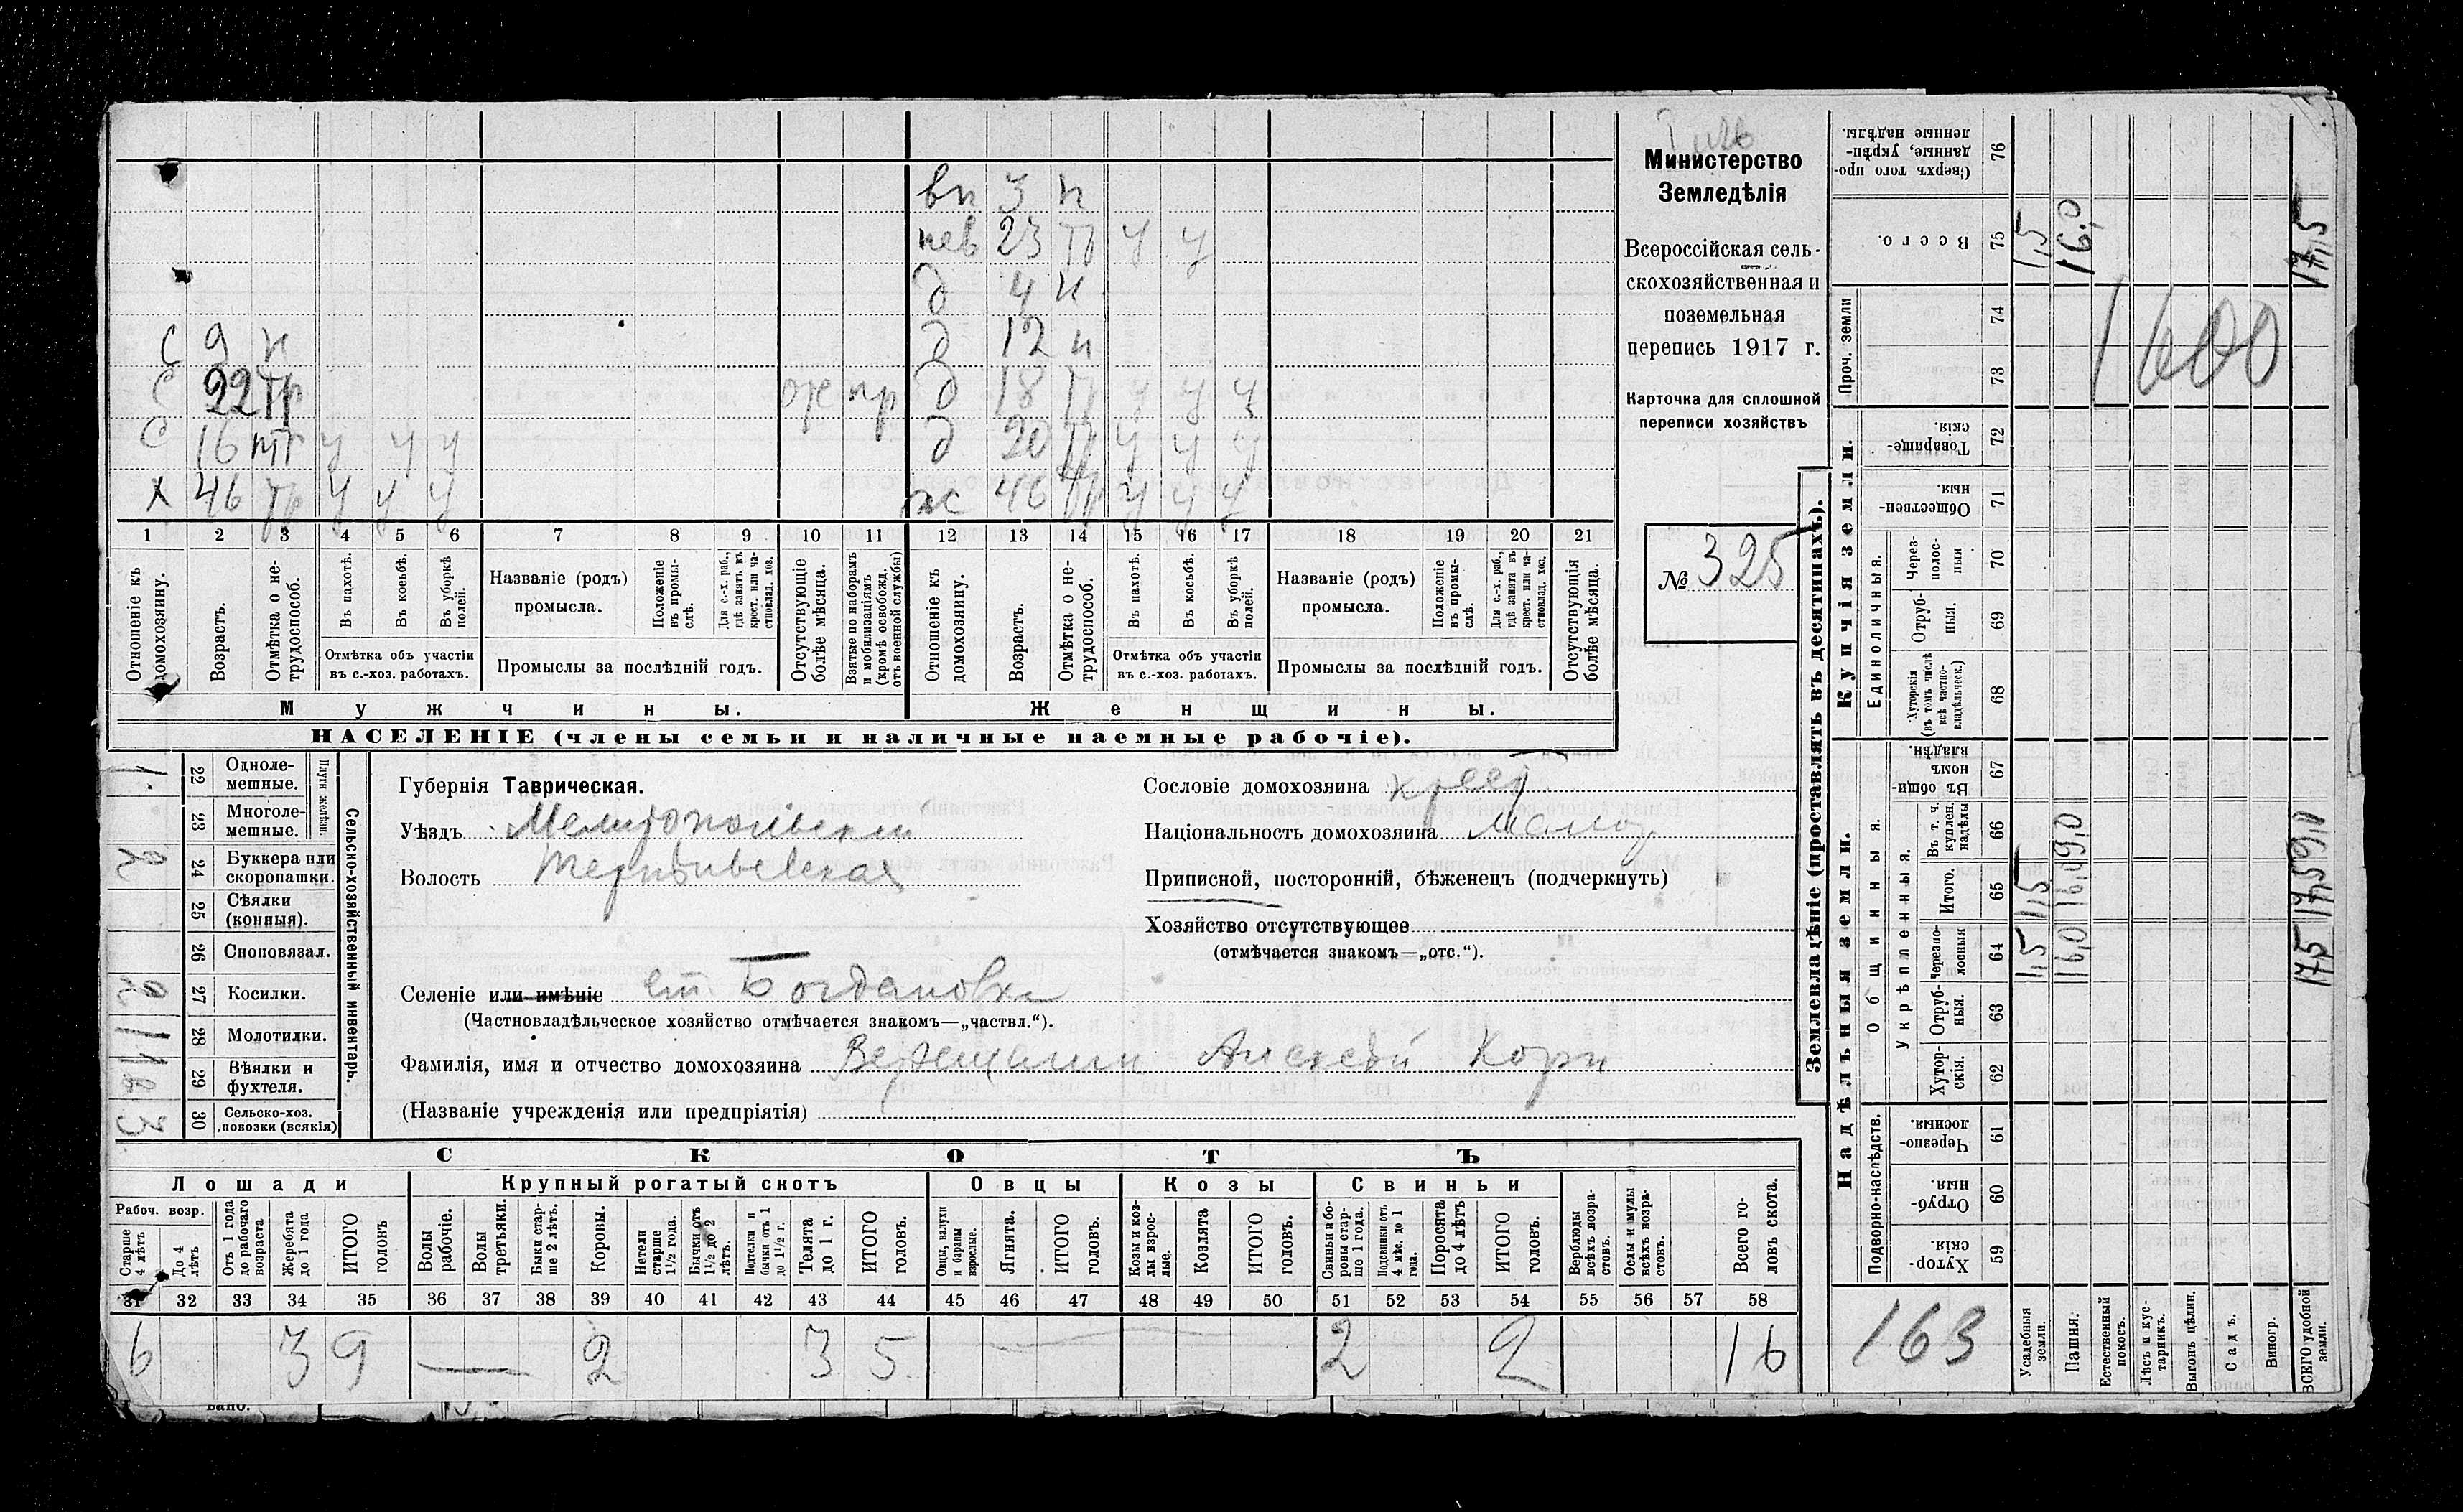 вп 3 н
нев 23 тр у у
д 4 н
С 9 н
д 12 н
С 22 тр
от пр
д 18 тр у у у
С 16 пт у у у
д 20 тр у у у
х 46 тр у у у
ж 46 тр у у у
1 2 3 4 5 6 7 8 9 10 11 12 13 14 15 16 17 18 19 20 21
Отношеніе къ домохозяину.
Возрастъ.
Отмѣтка о не-
трудоспособ.
Въ пахотѣ.
Въ косьбѣ.
Въ уборкѣ
полей.
Отмѣтка объ участіи
въ с.-хоз. работахъ.
Названіе (родъ)
промысла.
Положеніе
въ промы-
слѣ.
Для с.-х. раб.,
гдѣ занятъ въ
крест. или ча-
стновлад. хоз.
Промыслы за послѣдній годъ.
Отсутствующіе
болѣе мѣсяца.
Взятые по наборамъ
и мобилизаціямъ
(кромѣ освобожд.
отъ военной службы)
Отношеніе къ
домохозяину.
Возрастъ.
Отмѣтка о не-
трудоспособ.
Въ пахотѣ.
Въ косьбѣ.
Въ уборкѣ
полей.
Отмѣтка объ участіи
въ с.-хоз. работахъ.
Названіе (родъ)
промысла.
Положеніе
въ промы-
слѣ.
Для с.-х. раб.,
гдѣ занята въ
крест. или ча-
стновлад. хоз.
Промыслы за послѣдній годъ.
Отсутствующія
болѣе мѣсяца.
Мужчины.
Женщины.
НАСЕЛЕНІЕ (члены семьи и наличные наемные рабочіе).
Министерство
Земледѣлія
Всероссійская сель-
скохозяйственная и
поземельная
перепись 1917 г.
Карточка для сплошной
переписи хозяйствъ
№ 325
1 22 Одноле-
мешные.
23 Многоле-
мешные.
Плуги желѣзн.
2 24 Буккера или
скоропашки.
25 Сѣялки
(конныя).
26 Сноповязал.
2 27 Косилки.
1 28 Молотилки.
29 Вѣялки и
фухтеля.
3 30 Сельско-хоз.
повозки (всякія)
Сельско-хозяйственный инвентарь.
Губернія Таврическая.
Уѣздъ Мелитопольскій
Волость
Селеніе или имѣніе Богдановка
(Частновладѣльческое хозяйство отмѣчается знакомъ—„частвл.“).
Фамилія, имя и отчество домохозяина Верещагин Алексѣй Корн
(Названіе учрежденія или предпріятія)
Сословіе домохозяина крест
Національность домохозяина малор
Приписной, посторонній, бѣженецъ (подчеркнуть)
Хозяйство отсутствующее
(отмѣчается знакомъ—„отс.“).
СКОТЪ
Лошади
Крупный рогатый скотъ
Овцы
Козы
Свиньи
Рабоч. возр.
Старше
4 лѣтъ
До 4
лѣтъ
Отъ 1 года
до рабочаго
возраста
Жеребята
до 1 года
ИТОГО
головъ
Волы
рабочіе.
Волы
третьяки.
Быки стар-
ше 2 лѣтъ.
Коровы.
Нетели
старше
1½ года.
Бычки отъ
1½ до 2
лѣтъ.
Подтелки и
бычки отъ 1
до 1½ г.
Телята
до 1 г.
ИТОГО
головъ.
Овцы, валухи
и бараны
взрослые.
Ягнята.
ИТОГО
головъ.
Козы и коз-
лы взрос-
лые.
Козлята
ИТОГО
головъ.
Свиньи и бо-
ровы стар-
ше 1 года.
Подсвинки отъ
4 мѣс. до 1
года.
Поросята
до 4 лѣтъ
ИТОГО
головъ.
Верблюды
всѣхъ возра-
стовъ.
Ослы и мулы
всѣхъ возра-
стовъ.
Всего го-
ловъ скота.
31 32 33 34 35 36 37 38 39 40 41 42 43 44 45 46 47 48 49 50 51 52 53 54 55 56 57 58
6 3 9 — 2 3 5 2 2 16
Землевладѣніе (проставлять въ десятинахъ).
Купчія земли.
Надѣльныя земли.
Сверхъ того про-
данные, укрѣп-
ленные надѣлы.
76
Всего.
75
1,5
16,0
17,5
Проч. земли
74
73
1600
Товарище-
скія.
72
Обществен-
ныя.
71
Единоличныя.
Через-
полос-
ныя
70
Отруб-
ныя.
69
Хуторскія
(въ томъ числѣ
всѣ частно-
владѣльческ.)
68
Общинныя.
Въ общи-
номъ
владѣн.
67
Укрѣпленныя.
Въ т. ч.
куплен.
надѣлы
66
9,0
9,0
Итого.
65
1,5
16,0
17,5
Черезпо-
лосныя
64
1,5
16,0
17,5
Отруб-
ныя.
63
Хутор-
скія.
62
Подворно-наслѣдств.
Черезпо-
лосныя.
61
Отруб-
ныя.
60
Хутор-
скія.
59
163
Усадебныя
земли.
Пашня.
Естественный
покосъ.
Лѣсъ и кус-
тарникъ.
Выгонъ цѣлин.
Садъ.
Виногр.
ВСЕГО удобной
земли.
вано.